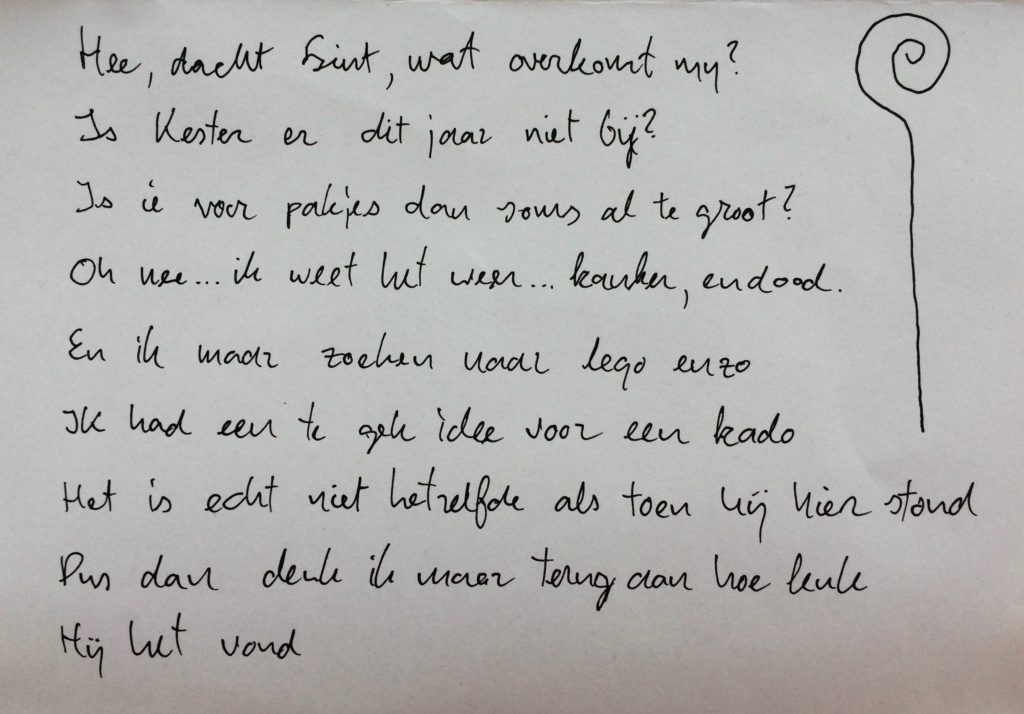 Hee, dacht Sint, wat overkomt mij?
Is Kester er dit jaar niet bij?
Is ie voor pakjes dan soms al te groot?
Oh nee... ik weet het weer... kanker, en dood.
En ik maar zoeken naar lego enzo
Ik had een te gek idee voor een kado
Het is echt niet hetzelfde als toen hij hier stond
Dus dan denk ik maar terug aan hoe leuk
Hij het vond